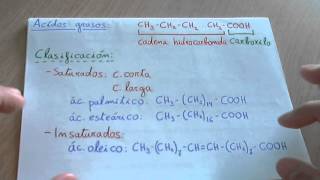 Ácidos grasos: CH₃-CH₂-CH₂ CH₂-COOH
cadena hidrocarbonada carboxilo
Clasificación:
- Saturados: c. corta
c. larga
ác. palmítico: CH₃-(CH₂)₁₄-COOH
ác. esteárico: CH₃-(CH₂)₁₆-COOH
- Insaturados:
ác. oleico: CH₃-(CH₂)₇-CH=CH-(CH₂)₇-COOH